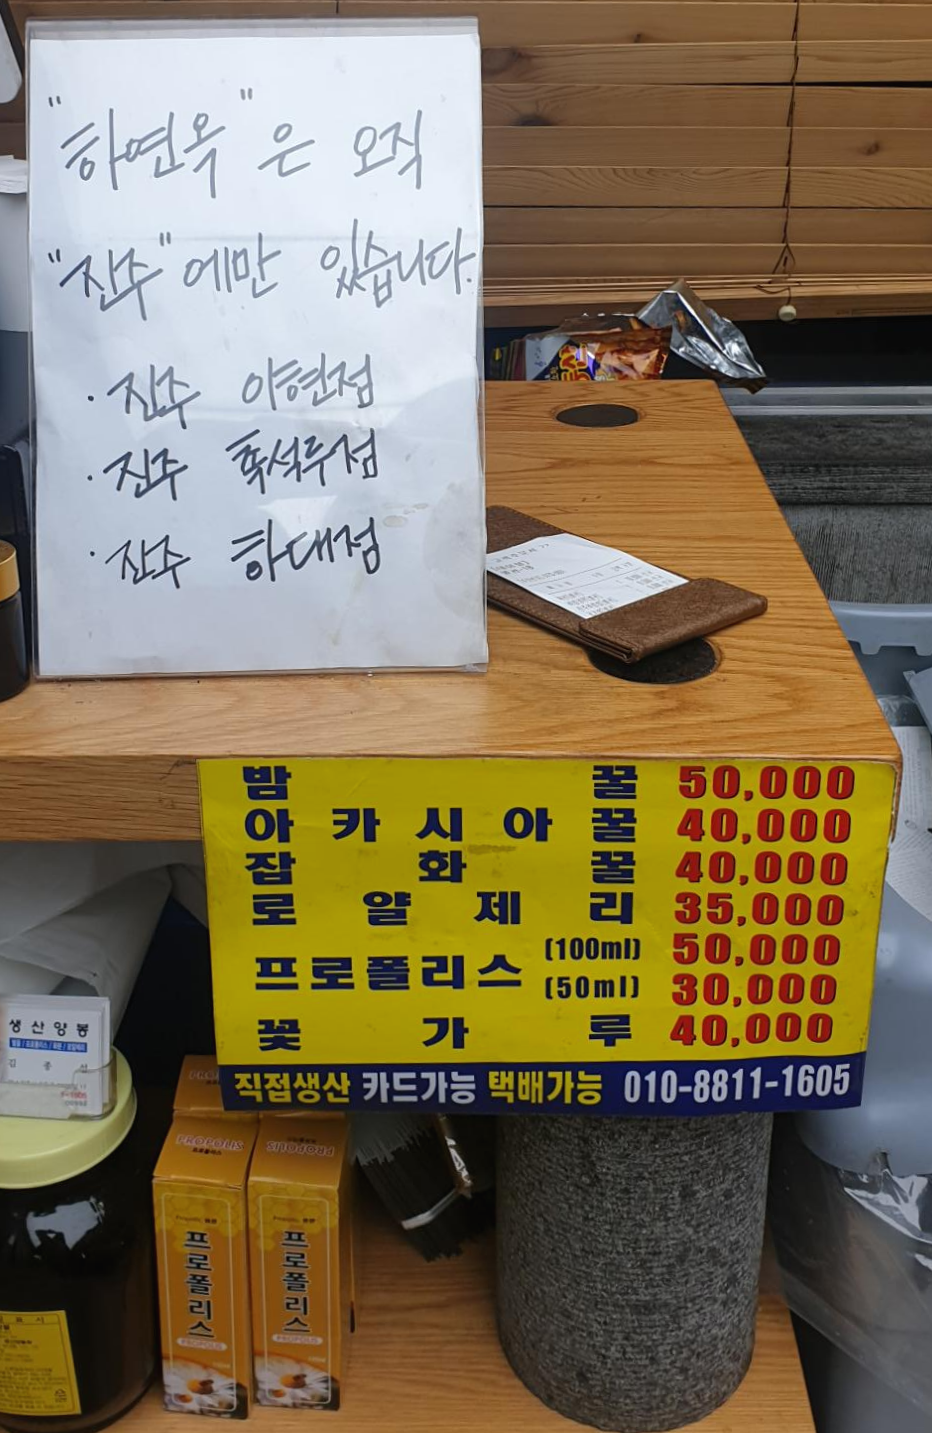 "하연옥"은 오직
"진주"에만 있습니다.
· 진주 이현점
· 진주 촉석루점
· 진주 하대점
밤 꿀 50,000
아카시아꿀 40,000
잡화꿀 40,000
로얄제리 35,000
프로폴리스 (100ml) 50,000
(50ml) 30,000
꽃가루 40,000
직접생산 카드가능 택배가능 010-8811-1605
생산양봉
PROPOLIS
프로폴리스
PROPOLIS
PROPOLIS
프로폴리스
PROPOLIS